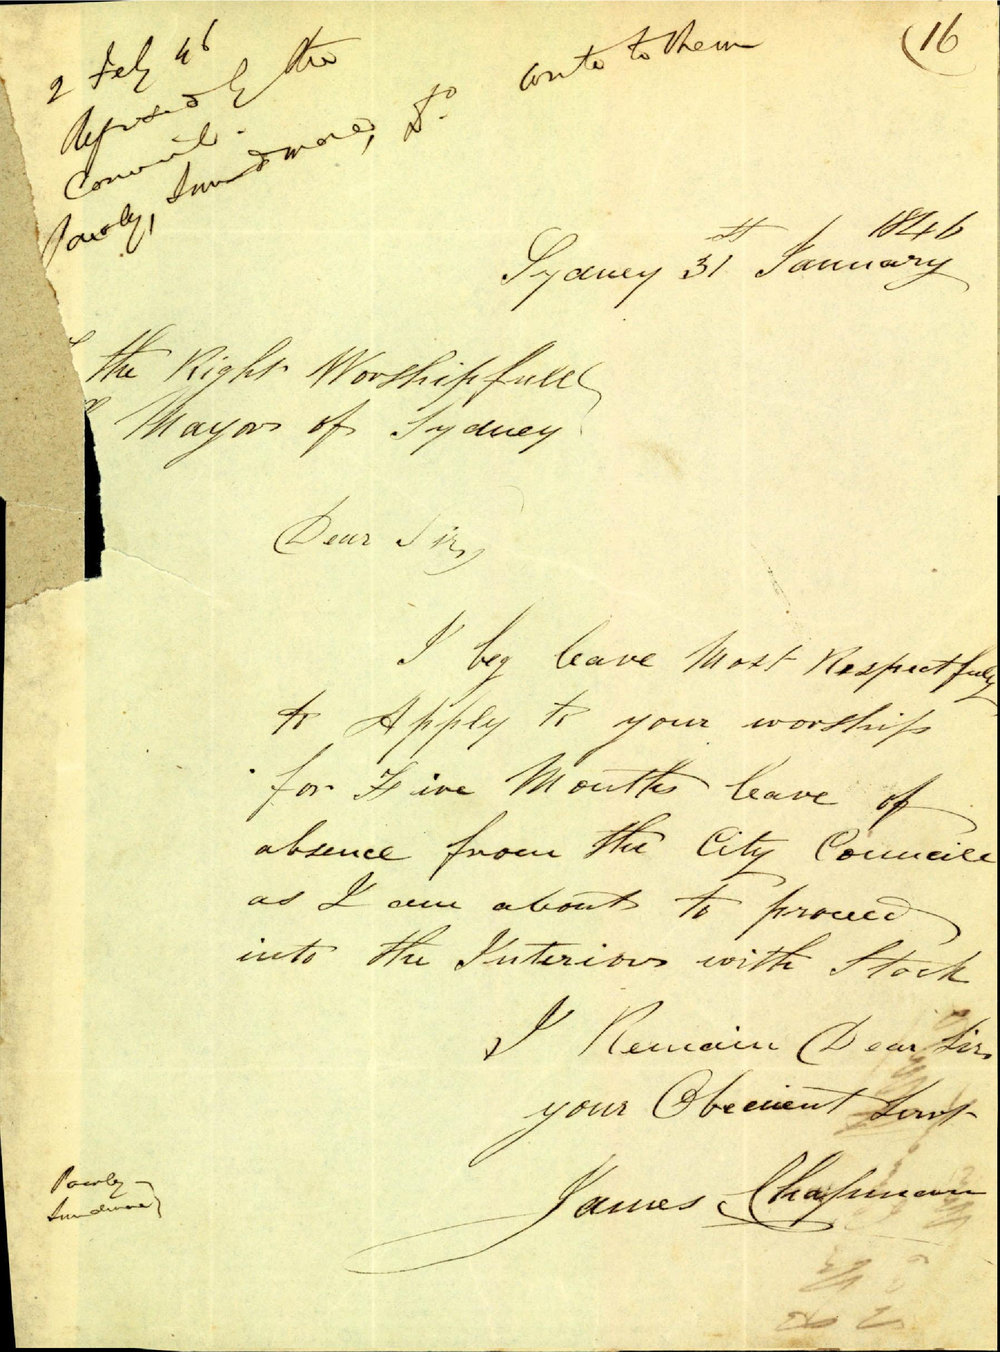 (16
2 Feby 46
Refused by the
Council.
Pawley, &
wrote to them
Sydney 31st January 1846
the Right Worshipfull
Mayor of Sydney
Dear Sir,
I beg leave Most Respectfully
to Apply to your worship
for Five Months leave of
absence from the City Councill
as I am about to proceed
into the Interior with Stock
I Remain Dear Sir
your Obedient Servt
James Chapman
Pawley